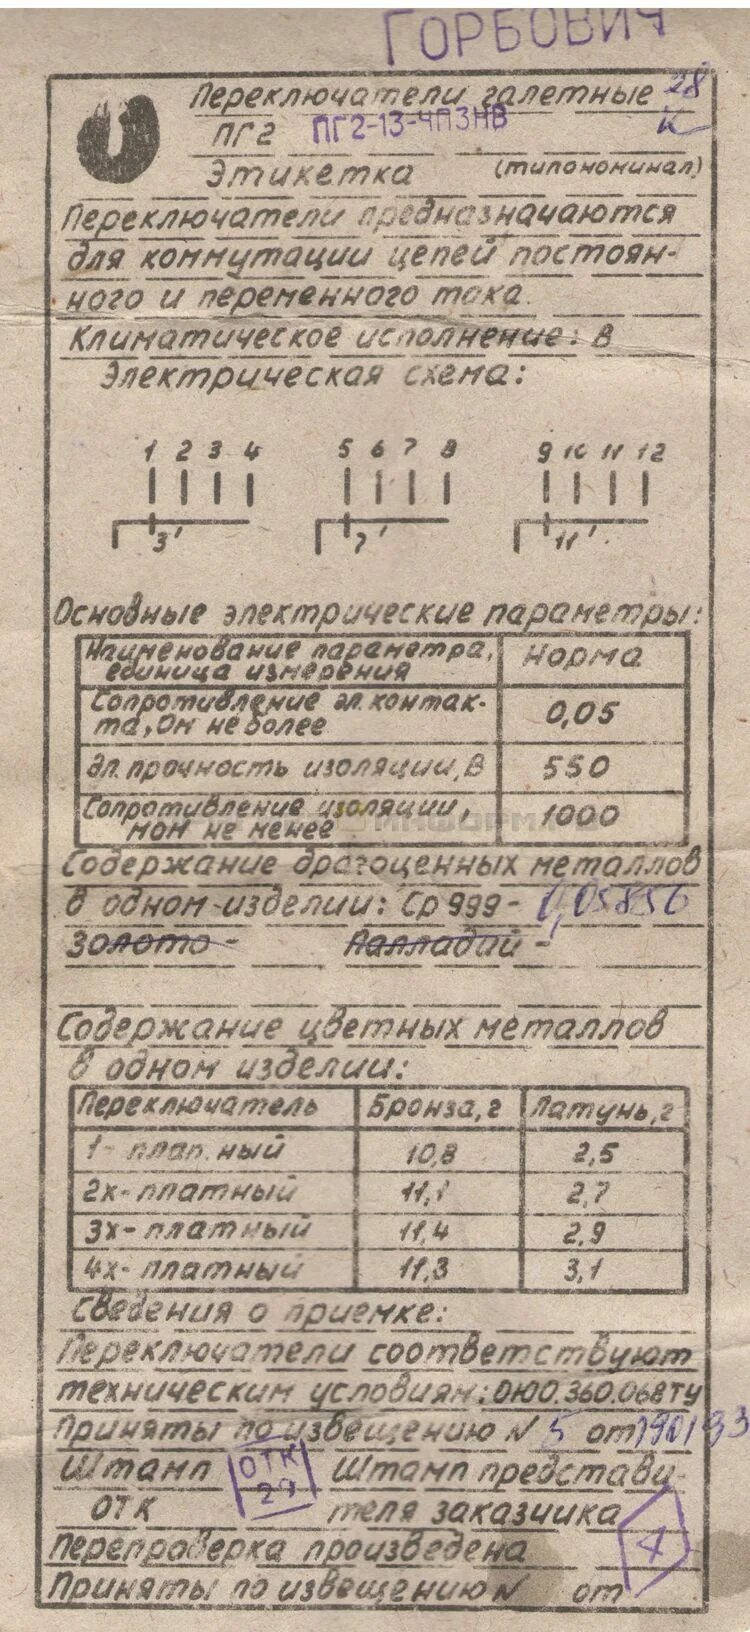 ГОРБОВИЧ
Переключатели галетные 28
ПГ2 ПГ2-13-4П3НВ
Этикетка (типономинал)
Переключатели предназначаются
для коммутации цепей постоян-
ного и переменного тока.
Климатическое исполнение: В
Электрическая схема:
1 2 3 4 5 6 7 8 9 10 11 12
3' 7' 11'
Основные электрические параметры:
Наименование параметра, единица измерения Норма
Сопротивление эл. контак-
та, Ом не более 0,05
Эл. прочность изоляции, В 550
Сопротивление изоляции,
мом не менее 1000
Содержание драгоценных металлов
в одном изделии: Ср 999- 0,05856
Золото - Палладий -
Содержание цветных металлов
в одном изделии:
Переключатель Бронза, г Латунь, г
1- плат.ный 10,8 2,5
2х- платный 11,1 2,7
3х- платный 11,4 2,9
4х- платный 11,3 3,1
Сведения о приемке:
Переключатели соответствуют
техническим условиям: ОЮ0.360.068ТУ
Приняты по извещению N 5 от
Штамп ОТК Штамп представи-
ОТК 29 теля заказчика
4
Перепроверка произведена
Приняты по извещению N от